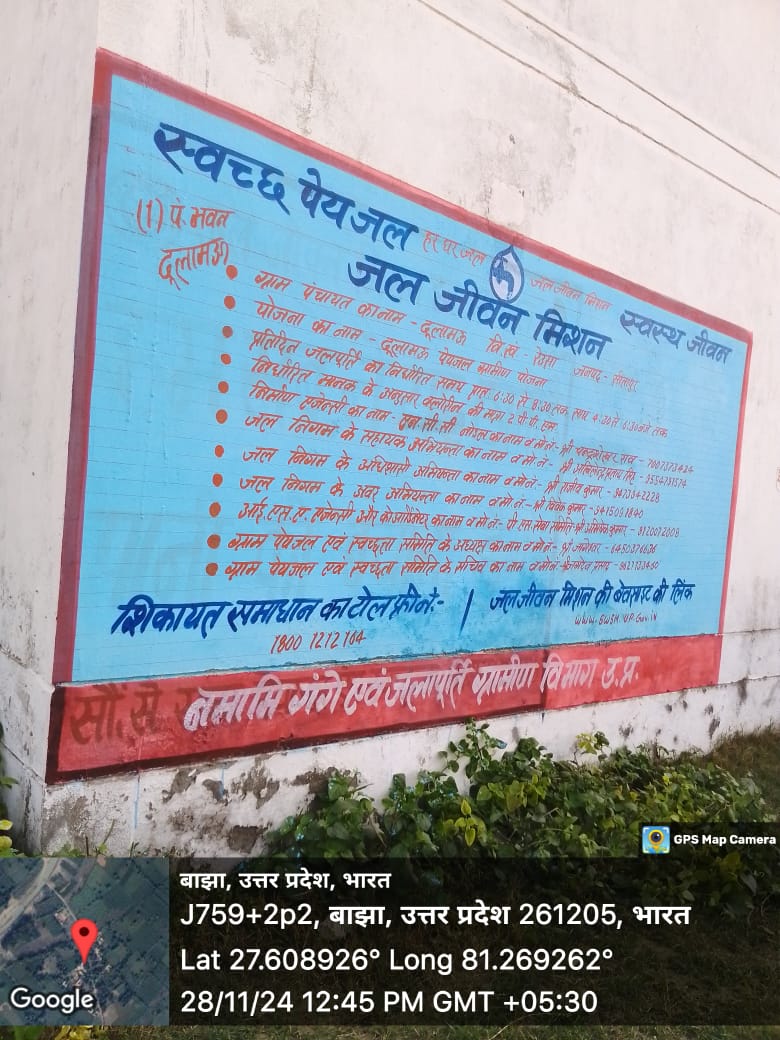 स्वच्छ पेयजल
हर घर जल
जल जीवन मिशन
स्वस्थ जीवन
(1) पं. भवन
दूलामऊ
जल जीवन मिशन
ग्राम पंचायत का नाम - दूलामऊ वि.ख. - रेउसा जनपद - सीतापुर
योजना का नाम - दूलामऊ पेयजल ग्रामीण योजना
प्रतिदिन जलपूर्ति का निर्धारित समय प्रातः 6:30 से 8:30 तक, सायं 4:30 से 6:30 बजे तक
निर्धारित मानक के अनुसार क्लोरीन की मात्रा 2 पी.पी.एम.
निर्माण एजेन्सी का नाम - एन.सी.सी नोडल का नाम व मो.नं.- श्री चन्द्रशेखर राव - 7007373424
जल निगम के सहायक अभियन्ता का नाम व मो.नं.- श्री अखिलेन्द्र प्रताप सिंह -
जल निगम के अधिशासी अभियन्ता का नाम व मो.नं.- श्री राजीव कुमार - 9473942228
जल निगम के अवर अभियन्ता का नाम व मो.नं.- श्री विवेक कुमार - 9415001840
आई.एस.ए. एजेन्सी और कोआर्डिनेटर का नाम व मो.नं.- पी एस सेवा समिति - श्री अभिषेक कुमार - 8120072008
ग्राम पेयजल एवं स्वच्छता समिति के अध्यक्ष का नाम व मो.नं.- श्री
ग्राम पेयजल एवं स्वच्छता समिति के सचिव का नाम व मो.नं.-
शिकायत समाधान का टोल फ्री नं.:-
1800 1212 164
जल जीवन मिशन की बेवसाइट की लिंक
www.swsm.up.Gov.in
नमामि गंगे एवं जलापूर्ति ग्रामीण विभाग उ.प्र.
GPS Map Camera
बाझा, उत्तर प्रदेश, भारत
J759+2p2, बाझा, उत्तर प्रदेश 261205, भारत
Lat 27.608926° Long 81.269262°
28/11/24 12:45 PM GMT +05:30
Google